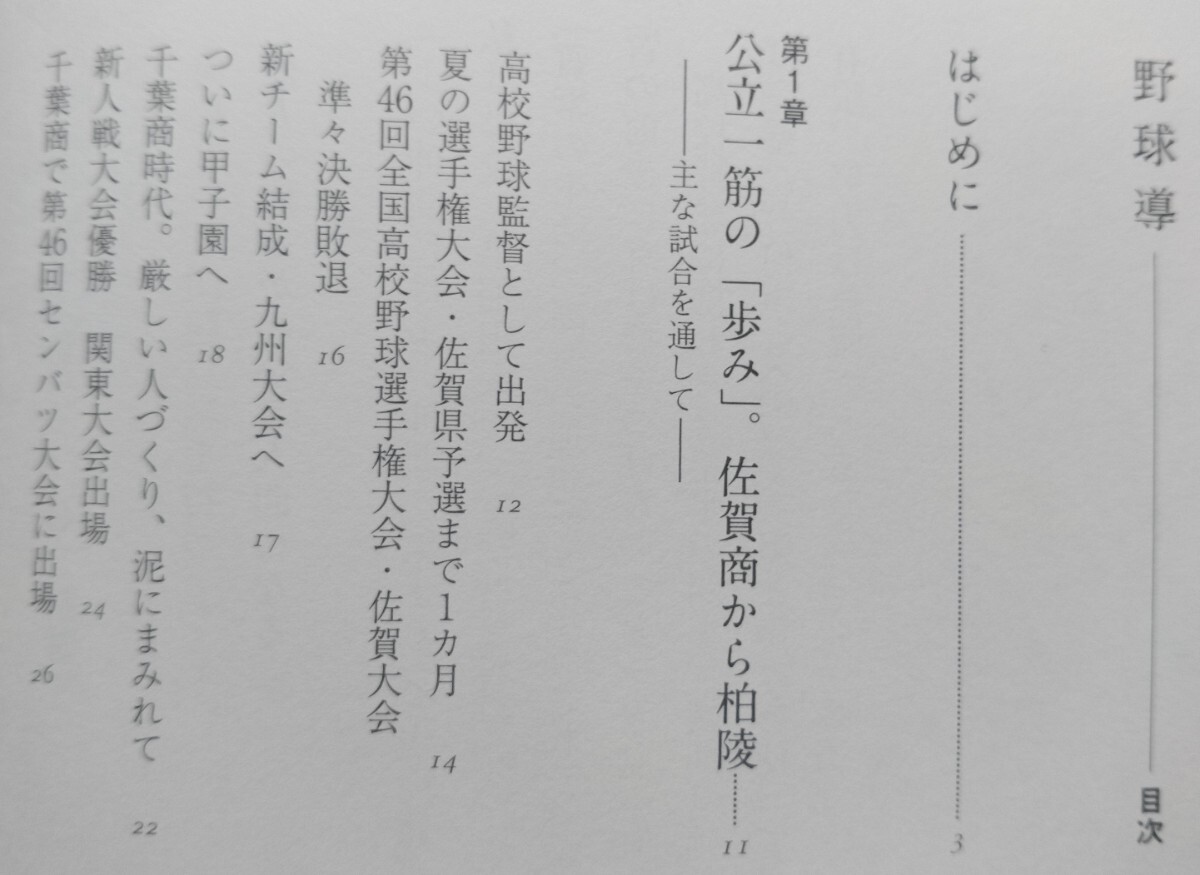 野球導 目次
はじめに 3
第1章
公立一筋の「歩み」。佐賀商から柏陵 11
――主な試合を通して――
高校野球監督として出発 12
夏の選手権大会・佐賀県予選まで1カ月 14
第46回全国高校野球選手権大会・佐賀大会
準々決勝敗退 16
新チーム結成・九州大会へ 17
ついに甲子園へ 18
千葉商時代。厳しい人づくり、泥にまみれて 22
新人戦大会優勝 関東大会出場 24
千葉商で第46回センバツ大会に出場 26